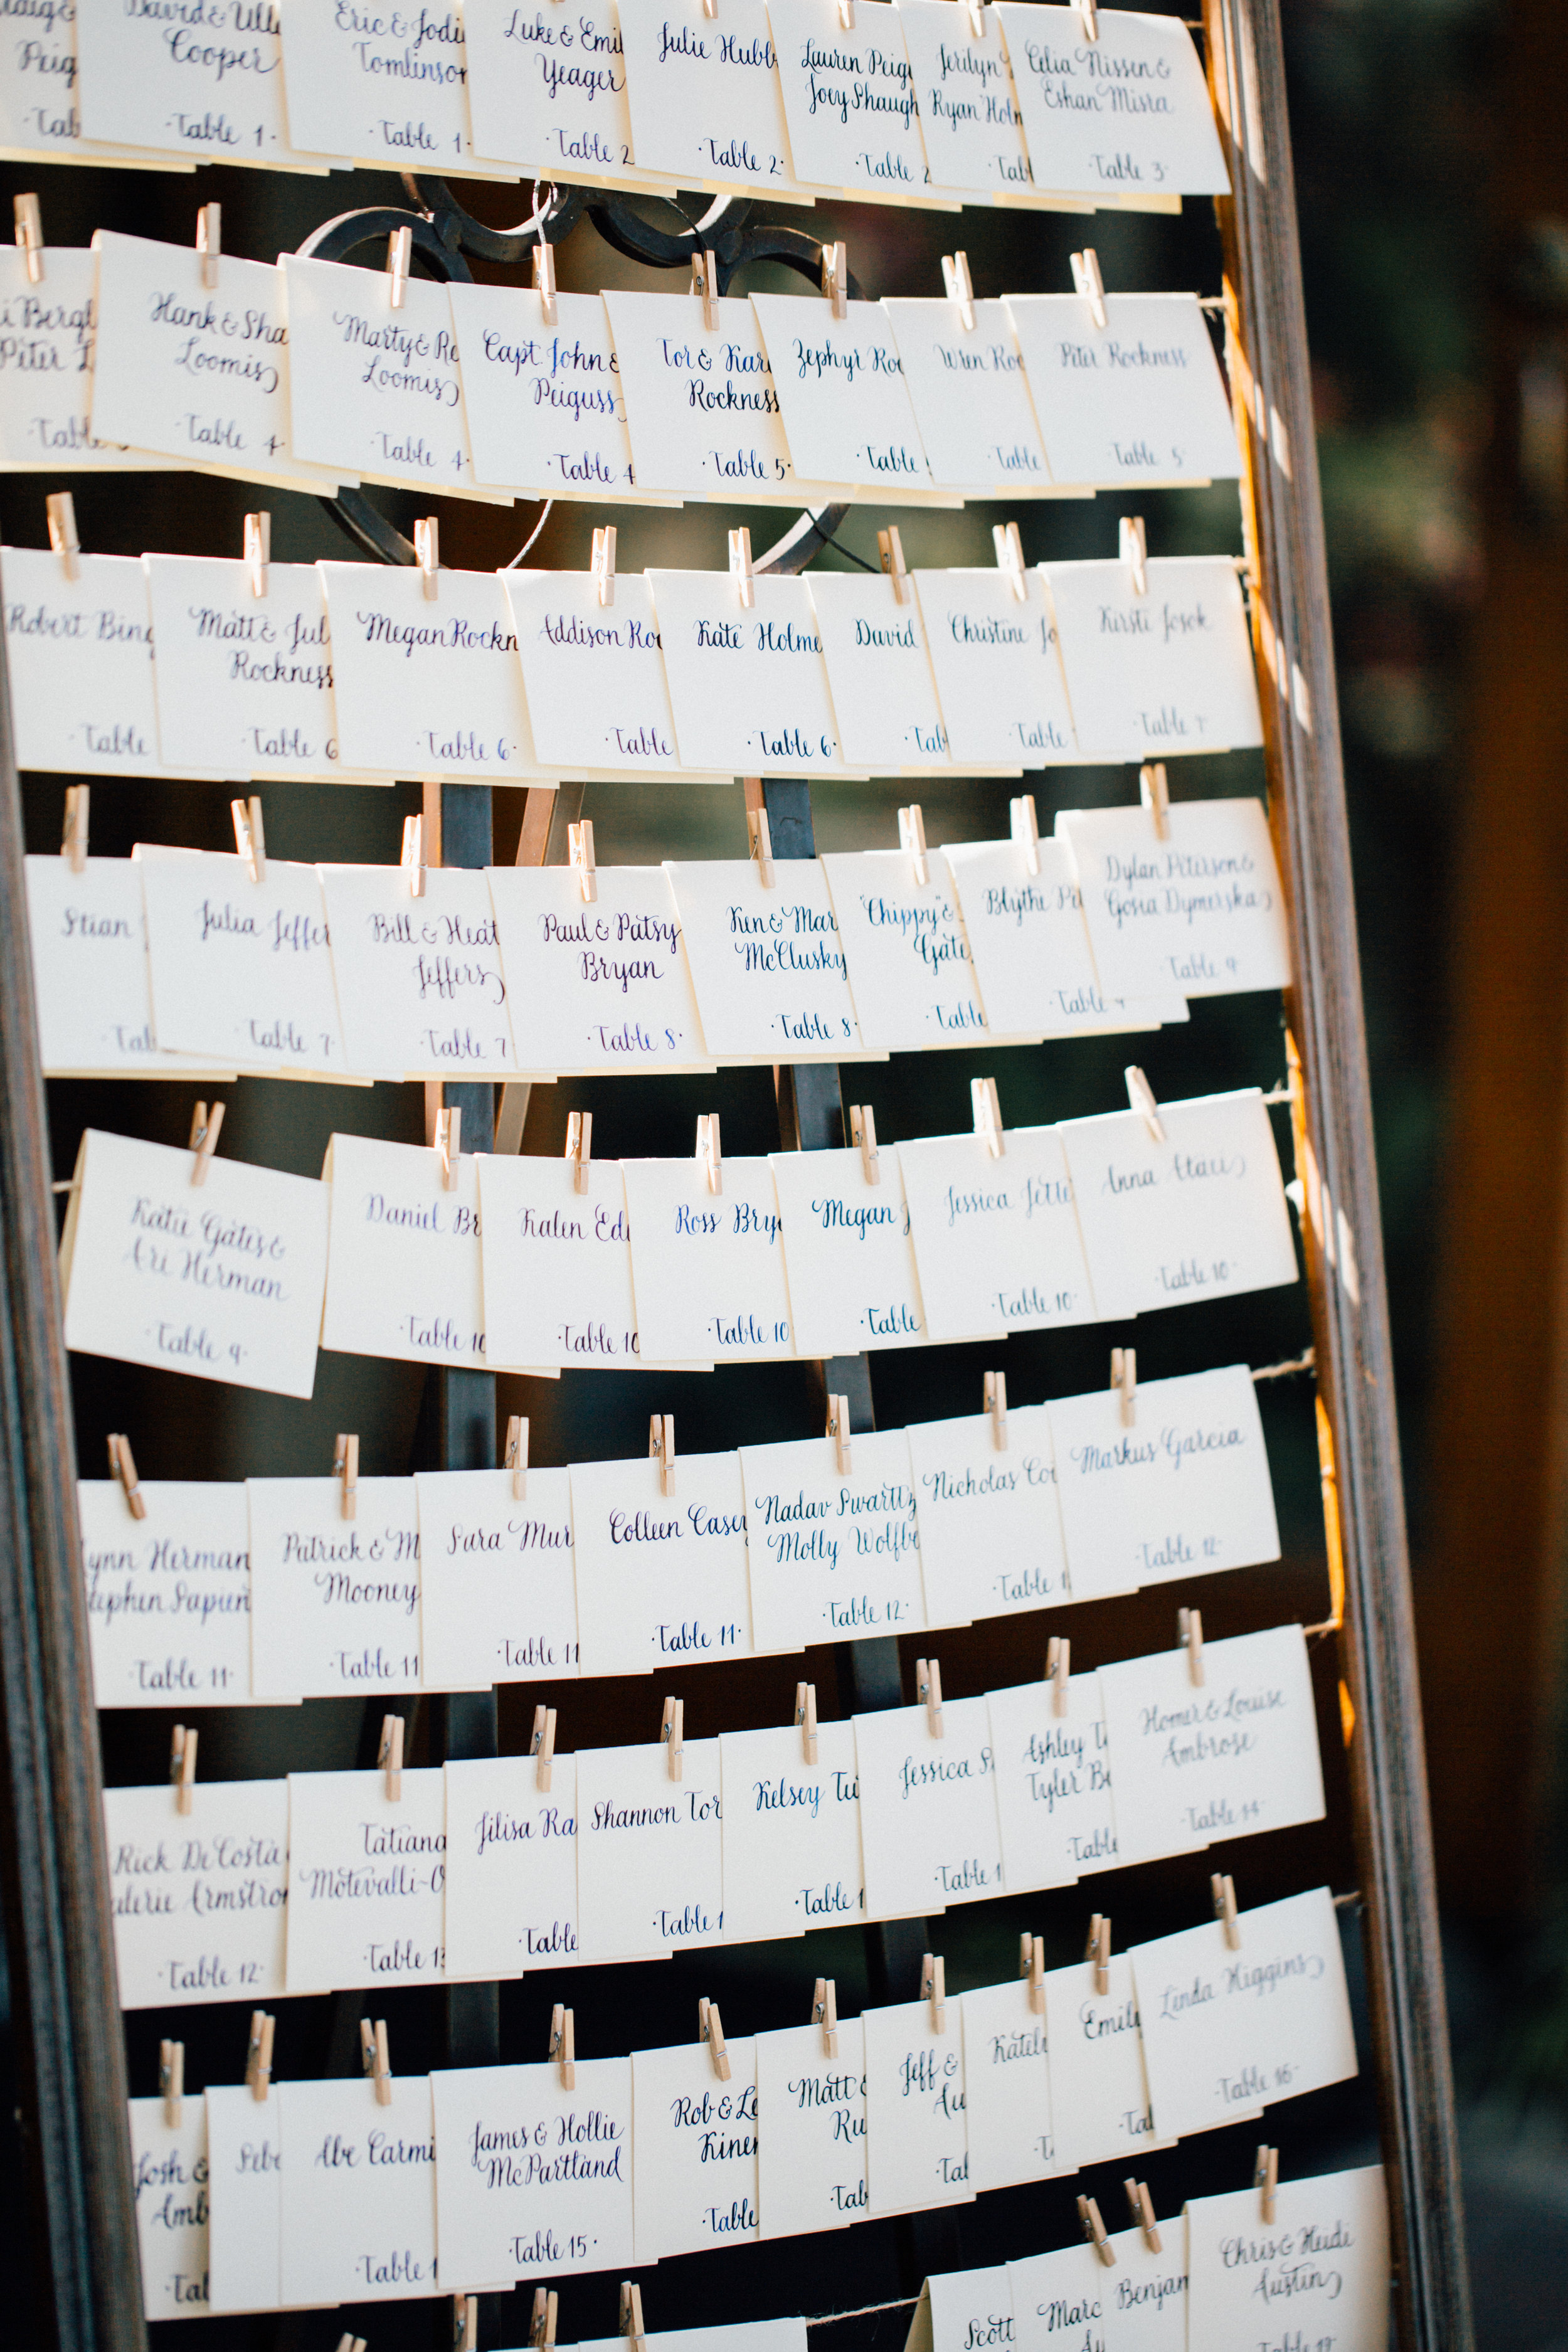 David & Ull
Cooper
·Table 1·
Eric & Jodi
Tomlinson
·Table 1·
Luke & Emi
Yeager
·Table 2
Julie Hubb
·Table 2·
Lauren Peig
Joey Shaugh
·Table 2
Jerilyn
Ryan Holm
·Tabl
Celia Nissen &
Eshan Misra
·Table 3·
Hank & Sha
Loomis
·Table 4·
Marty & Re
Loomis
·Table 4·
Capt. John &
Peiguss
·Table 4
Tor & Kari
Rockness
·Table 5·
Zephyr Roc
·Table
Wren Roc
·Table
Peter Rockness
·Table 5·
Robert Bing
·Table
Matt & Jul
Rockness
·Table 6
Megan Rockn
·Table 6·
Addison Roc
·Table
Kate Holme
·Table 6·
David
·Tab
Christine Jo
·Table
Kirsti Josok
·Table 7·
Stian
·Tab
Julia Jeffer
·Table 7
Bill & Heat
Jeffers
·Table 7
Paul & Patsy
Bryan
·Table 8·
Ken & Mar
McClusky
·Table 8·
"Chippy" &
Gate
·Table
Blythe Pe
·Table 9
Dylan Peterson &
Gosia Dymerska
·Table 9·
Katie Gates &
Ari Herman
·Table 9·
Daniel Br
·Table 10
Kalen Ed
·Table 10
Ross Brya
·Table 10
Megan J
·Table
Jessica Jette
·Table 10·
Anna Ataei
·Table 10·
ynn Herman
tephen Sapien
·Table 11·
Patrick & M
Mooney
·Table 11
Sara Mur
·Table 11
Colleen Casey
·Table 11·
Nadav Swarttz
Molly Wolfbe
·Table 12·
Nicholas Co
·Table 1
Markus Garcia
·Table 12·
Rick DeCosta
alerie Armstron
·Table 12·
Tatiana
Motevalli-O
·Table 13
Jilisa Ra
·Table
Shannon Tor
·Table 1
Kelsey Tu
·Table 1
Jessica S
·Table 1
Ashley T
Tyler Be
·Table
Homer & Louise
Ambrose
·Table 14·
Josh &
Amb
·Tal
Abe Carmi
·Table 1
James & Hollie
McPartland
·Table 15·
Rob & Le
Kiner
·Table
Matt &
Ru
·Tab
Jeff &
Au
·Tal
Katel
·T
Emil
·Tal
Linda Higgins
·Table 16·
Scott
Marc
Au
Benjam
Chris & Heidi
Austin
·Table 17·